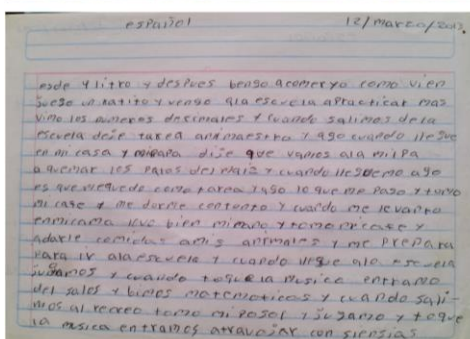 español 12/marzo/2013.
esde 4 litro y despues bengo acomer yo como vien
juego un ratito y vengo ala escuela apracticar mas
vimo los numeros desimales y cuando salimos de la
escuela deje tarea animaestro y ago cuando llegue
en mi casa y mipapa dije que vamos ala milpa
aquemar los palos del mais y cuando lleguemo ago
es que mequede como tarea yago lo que me paso y tomo
mi cafe y me dormie contento y cuando me levanto
enmicama lavo bien mimano y tomo micafe y
adarle comidas amis animales y me prepara
para ir ala escuela y cuando llegue ala escuela
jugamos y cuando toque la musica entramo
del salos y bimos matematicas y cuando sali-
mos al recreo tomo mi posol y jugamo y toque
la musica entramos atravajar con siensias